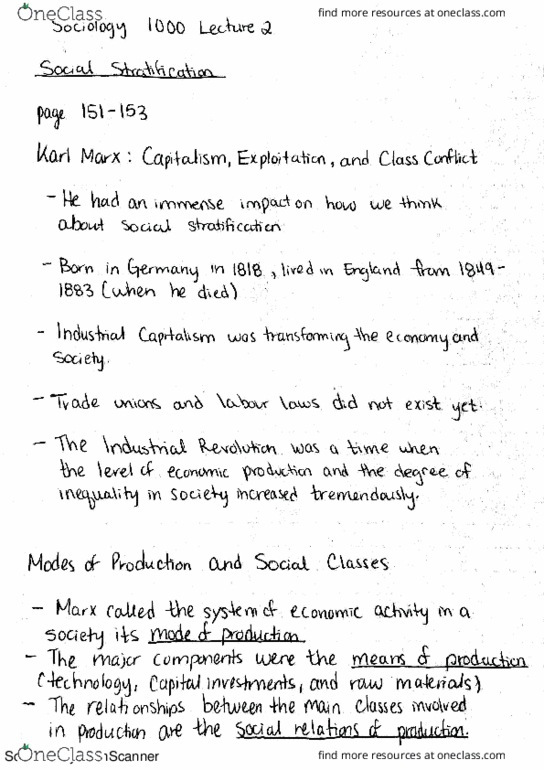 OneClass find more resources at oneclass.com
Sociology 1000 Lecture 2
Social Stratification
page 151-153
Karl Marx: Capitalism, Exploitation, and Class Conflict
- He had an immense impact on how we think
about social stratification
- Born in Germany in 1818, lived in England from 1849-
1883 (when he died)
- Industrial Capitalism was transforming the economy and
society.
- Trade unions and labour laws did not exist yet.
- The Industrial Revolution was a time when
the level of economic production and the degree of
inequality in society increased tremendously.
Modes of Production and Social Classes
- Marx called the system of economic activity in a
society its mode of production
- The major components were the means of production
(technology, capital investments, and raw materials)
- The relationships between the main classes involved
in production are the social relations of production.
OneClass Scanner find more resources at oneclass.com